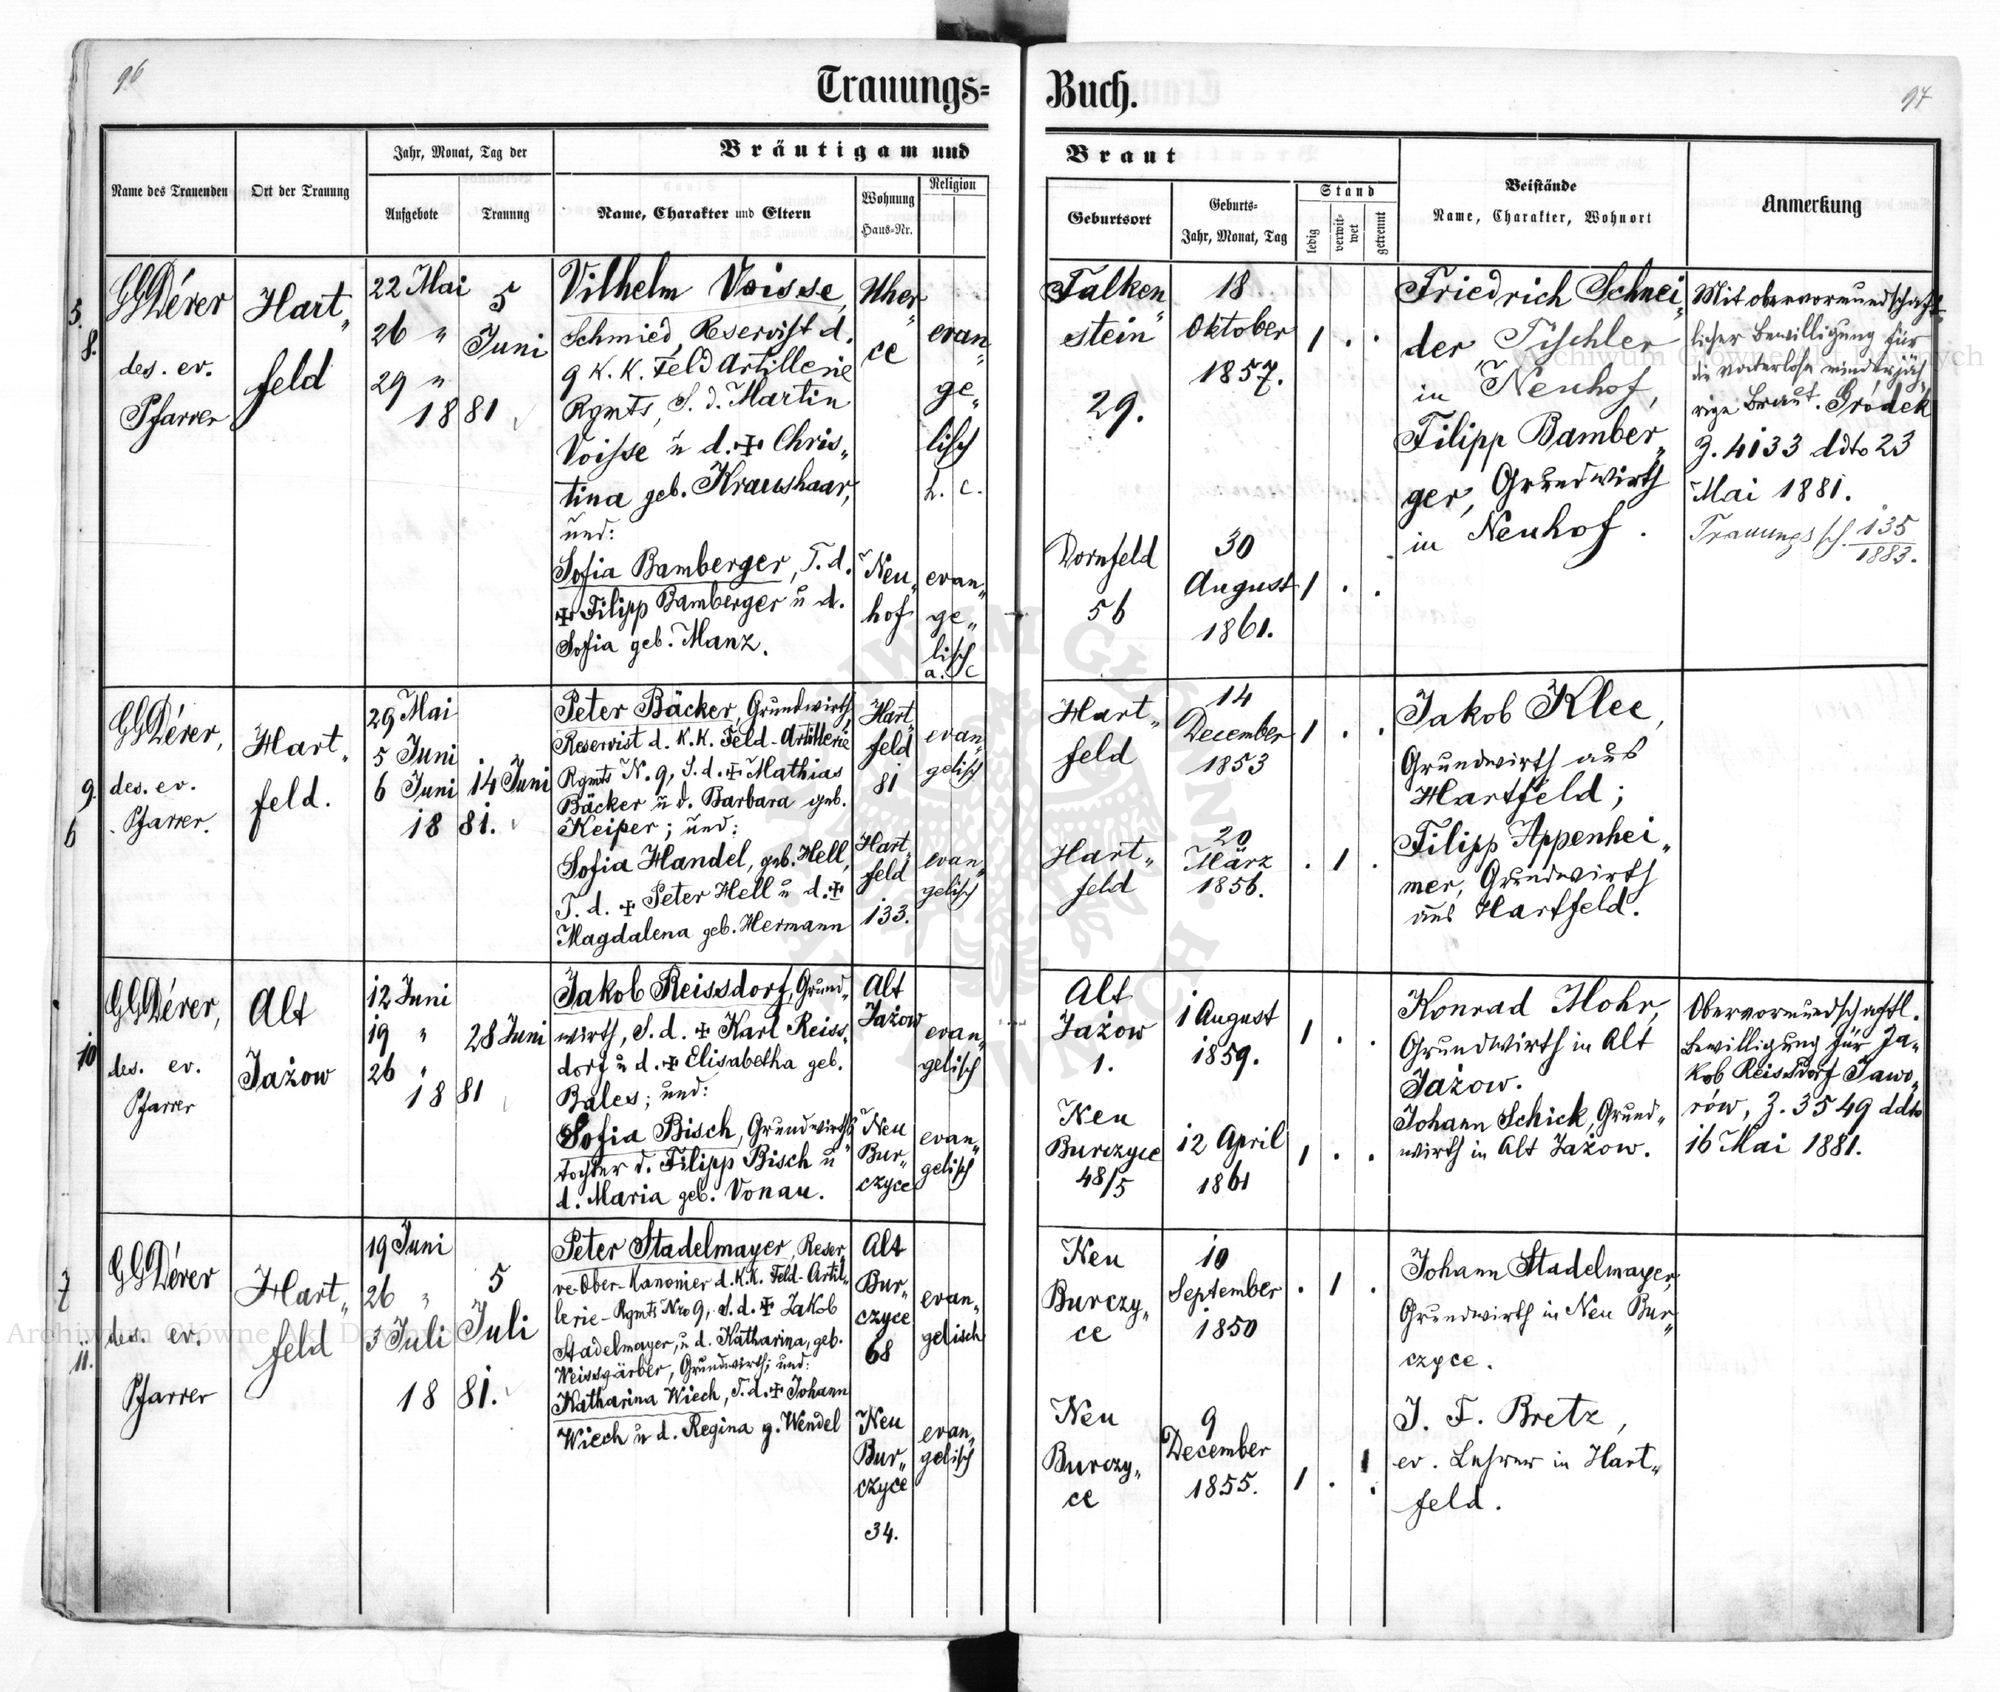 96
Trauungs=
Buch.
97
Name des Trauenden
Ort der Trauung
Jahr, Monat, Tag der
Aufgebote
Trauung
Bräutigam und
Name, Charakter und Eltern
Wohnung
Haus=Nr.
Religion
Braut
Geburtsort
Geburts=
Jahr, Monat, Tag
Stand
ledig
verwit-
wet
getrennt
Beistände
Name, Charakter, Wohnort
Anmerkung
5.
8.
GGDérer
des. ev.
Pfarrer
Hart„
feld
22 Mai
26 "
29 "
5
Juni
1881
Vilhelm Voisse,
Schmied, Reservist d.
9 K. K. Feld Artillerie
Rgmts, S. d. Martin
Voisse u d. ✝ Chris„
tina geb. Kraushaar,
und:
Sofia Bamberger, T. d.
✝ Filipp Bamberger u d.
Sofia geb. Manz.
Uher„
ce
Neu„
hof
evan„
ge„
lisch
h. c.
evan„
ge„
lisch
a. c
Falken„
stein
29.
Dornfeld
56
18
Oktober
1857.
30
August
1861.
1 . .
1 . .
Friedrich Schnei„
der, Tischler
in Neuhof,
Filipp Bamber„
ger, Grundwirth
in Neuhof.
Mit obervormundschaft
licher Bewilligung für
die vaterlose minderjäh„
rige Braut. Gródek
Z. 4133 ddto 23
Mai 1881.
Trauungssch. 135
1883.
9.
6
GGDérer,
des. ev.
Pfarrer.
Hart„
feld.
29 Mai
5 Juni
6 Juni
14 Juni
1881.
Peter Bäcker, Grundwirth,
Reservist d. K.K. Feld-Artillerie
Rgmts N. 9, S. d. ✝ Mathias
Bäcker u d. Barbara geb.
Keiper; und:
Sofia Handel, geb. Hell,
T. d. ✝ Peter Hell u d. ✝
Magdalena geb. Hermann
Hart„
feld
81
Hart„
feld
133.
evan„
gelisch
evan„
gelisch
Hart„
feld
Hart„
feld
14
December
1853
20
März
1856.
1 . .
. 1 .
Jakob Klee,
Grundwirth aus
Hartfeld;
Filipp Appenhei„
mer, Grundwirth
aus Hartfeld.
10
GGDérer,
des. ev.
Pfarrer
Alt
Jażow
12 Juni
19 "
26 "
28 Juni
1881
Jakob Reissdorf, Grund„
wirth, S. d. ✝ Karl Reiss„
dorf u d. ✝ Elisabetha geb.
Bales; und:
Sofia Bisch, Grundwirths„
tochter d. Filipp Bisch u
d. Maria geb. Vonau.
Alt
Jażow
Neu
Bur„
czyce
evan„
gelisch
evan„
gelisch
Alt
Jażow
1.
Neu
Burczyce
48/5
1 August
1859.
12 April
1861
1 . .
1 . .
Konrad Mohr,
Grundwirth in Alt
Jażow.
Johann Schick, Grund„
wirth in Alt Jażow.
Obervormundschaftl.
Bewilligung für Ja„
kob Reissdorf Jawo„
rów, Z. 3549 ddto
16 Mai 1881.
7
11.
GGDérer
des. ev.
Pfarrer
Hart„
feld
19 Juni
26 "
3 Juli
5
Juli
1881.
Peter Stadelmayer, Reser„
ve Ober-Kanonier d. K.K. Feld-Artil„
lerie-Rgmts Nro 9, S. d. ✝ Jakob
Stadelmayer, u d. Katharina, geb.
Weissgärber, Grundwirth; und:
Katharina Wiech, T. d. ✝ Johann
Wiech u d. Regina g. Wendel
Alt
Bur„
czyce
68
Neu
Bur„
czyce
34.
evan„
gelisch
evan„
gelisch
Neu
Burczy„
ce
Neu
Burczy„
ce
10
September
1850
9
December
1855.
. 1 .
1 . .
Johann Stadelmayer,
Grundwirth in Neu Bur„
czyce.
J. F. Bretz,
ev. Lehrer in Hart„
feld.
Archiwum Główne Akt Dawnych